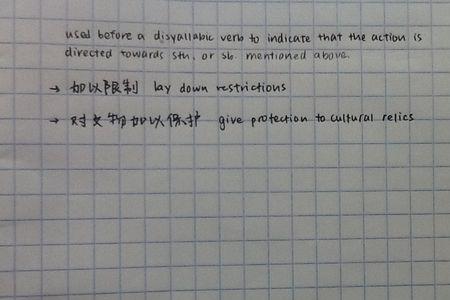 used before a disyallabic verb to indicate that the action is
directed towards sth. or sb. mentioned above.
→ 加以限制 lay down restrictions
→ 对文物加以保护 give protection to cultural relics